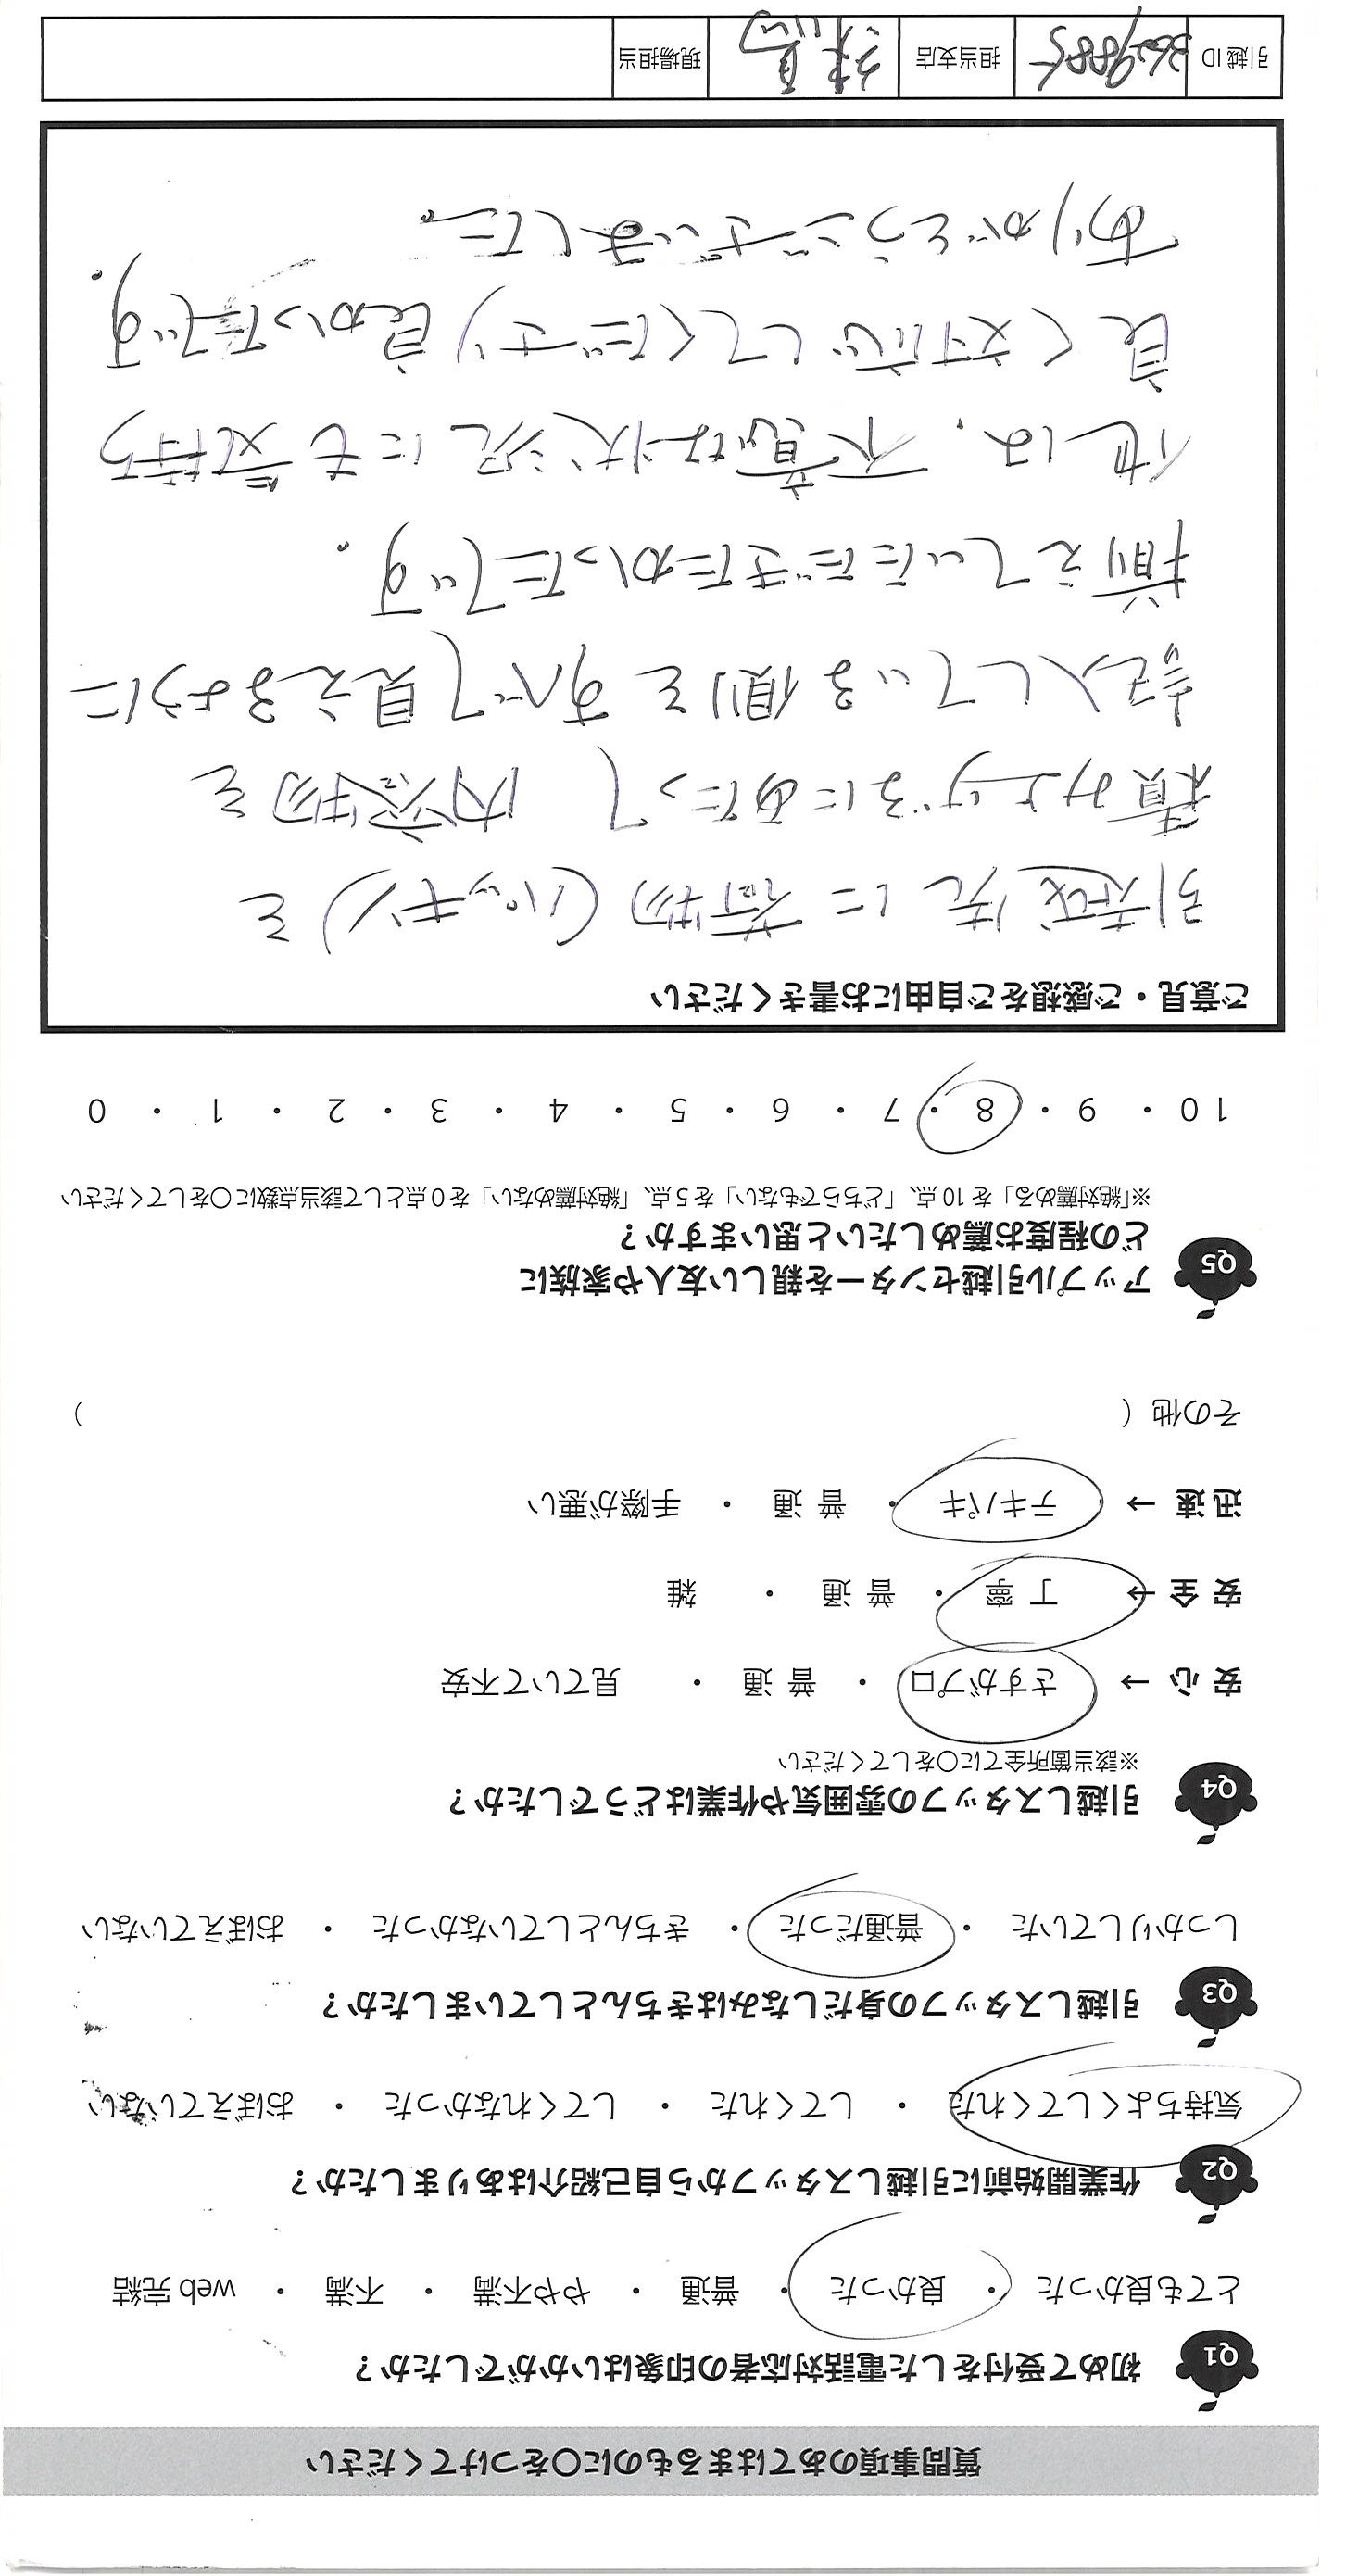 質問事項のあてはまるものに〇をつけてください
Q1 初めて受付をした電話対応者の印象はいかがでしたか？
とても良かった ・ 良かった ・ 普通 ・ やや不満 ・ 不満 ・ web 完結
Q2 作業開始前に引越しスタッフから自己紹介はありましたか？
気持ちよくしてくれた ・ してくれた ・ してくれなかった ・ おぼえていない
Q3 引越しスタッフの身だしなみはきちんとしていましたか？
しっかりしていた ・ 普通だった ・ きちんとしていなかった ・ おぼえていない
Q4 引越しスタッフの雰囲気や作業はどうでしたか？
※該当箇所全てに〇をしてください
安心 → さすがプロ ・ 普通 ・ 見ていて不安
安全 → 丁寧 ・ 普通 ・ 雑
迅速 → テキパキ ・ 普通 ・ 手際が悪い
その他（ ）
Q5 アップル引越センターを親しい友人や家族に
どの程度お薦めしたいと思いますか？
※「絶対薦める」を 10 点、「どちらでもない」を 5 点、「絶対薦めない」を 0 点として該当点数に〇をしてください
10 ・ 9 ・ 8 ・ 7 ・ 6 ・ 5 ・ 4 ・ 3 ・ 2 ・ 1 ・ 0
ご意見・ご感想をご自由にお書きください
引越先に荷物（パッキン）を
積み上げるにあたって 内容物を
記入している側をすべて見えるように
揃えていただきたかったです。
他は、不意な状況にも気持ち
良く対応してくださり良かったです。
ありがとうございました。
引越 ID 3629885 担当支店 練馬 現場担当